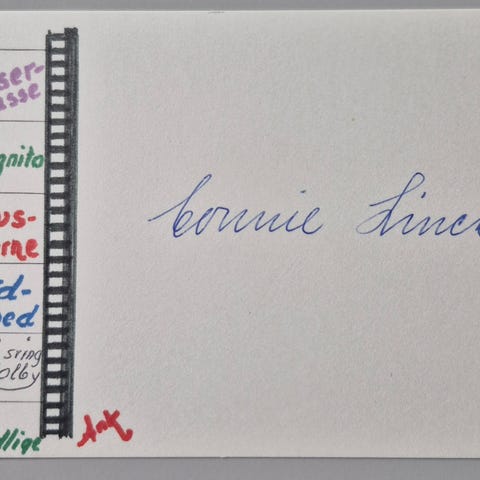 ser-
asse
gnito
us-
erne
d-
ned
sring
olby
llige
Connie Linck
Ank